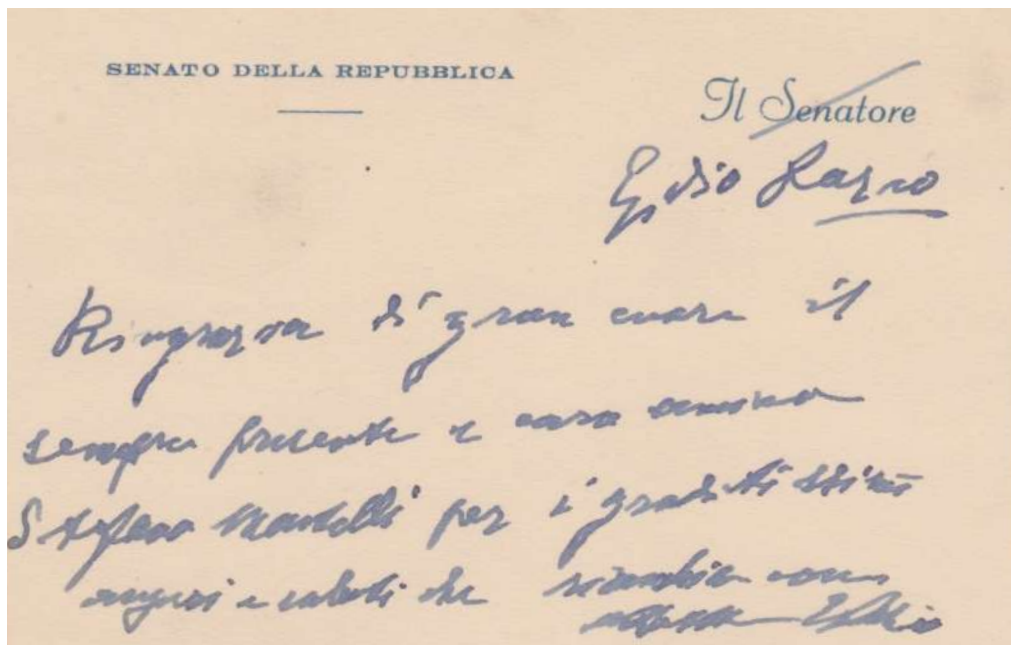 SENATO DELLA REPUBBLICA
Il Senatore
Egidio
Ringrazia di gran cuore il
sempre presente e caro amico
Stefano Martelli per i graditissimi
auguri e saluti che ricambia con
affetto Egidio